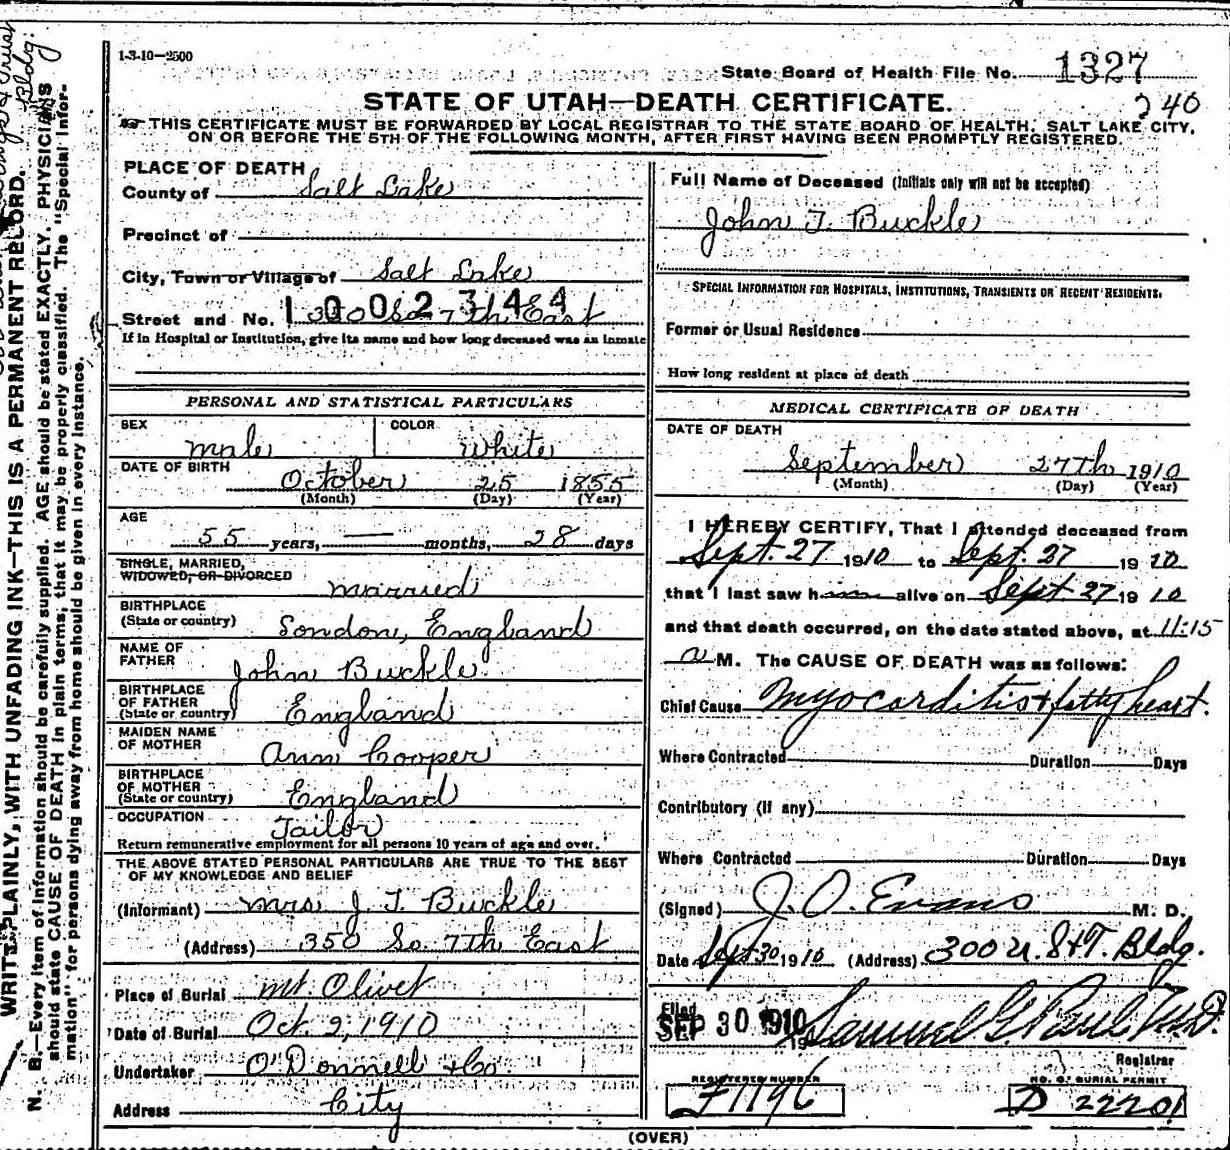 1-3-10—2500
State Board of Health File No. 1327
240
STATE OF UTAH—DEATH CERTIFICATE.
THIS CERTIFICATE MUST BE FORWARDED BY LOCAL REGISTRAR TO THE STATE BOARD OF HEALTH, SALT LAKE CITY,
ON OR BEFORE THE 5TH OF THE FOLLOWING MONTH, AFTER FIRST HAVING BEEN PROMPTLY REGISTERED.
WRITE PLAINLY, WITH UNFADING INK—THIS IS A PERMANENT RECORD.
N. B.—Every item of information should be carefully supplied. AGE should be stated EXACTLY. PHYSICIANS
should state CAUSE OF DEATH in plain terms, that it may be properly classified. The "Special Infor-
mation" for persons dying away from home should be given in every instance.
PLACE OF DEATH
County of Salt Lake
Precinct of
City, Town or Village of Salt Lake
1002344
Street and No. So 7th East
If in Hospital or Institution, give its name and how long deceased was an inmate
PERSONAL AND STATISTICAL PARTICULARS
SEX male COLOR White
DATE OF BIRTH October 25 1855
(Month) (Day) (Year)
AGE
55 years, — months, 28 days
SINGLE, MARRIED,
WIDOWED, OR DIVORCED married
BIRTHPLACE
(State or country) London, England
NAME OF
FATHER John Buckle
BIRTHPLACE
OF FATHER
(State or country) England
MAIDEN NAME
OF MOTHER Ann Cooper
BIRTHPLACE
OF MOTHER
(State or country) England
OCCUPATION
Tailor
Return remunerative employment for all persons 10 years of age and over.
THE ABOVE STATED PERSONAL PARTICULARS ARE TRUE TO THE BEST
OF MY KNOWLEDGE AND BELIEF
(Informant) Mrs J T Buckle
(Address) 350 So. 7th East
Place of Burial Mt. Olivet
Date of Burial Oct 2, 1910
Undertaker O'Donnell & Co.
Address City
Full Name of Deceased (Initials only will not be accepted)
John T. Buckle
SPECIAL INFORMATION FOR HOSPITALS, INSTITUTIONS, TRANSIENTS OR RECENT RESIDENTS.
Former or Usual Residence
How long resident at place of death
MEDICAL CERTIFICATE OF DEATH
DATE OF DEATH
September 27th 1910
(Month) (Day) (Year)
I HEREBY CERTIFY, That I attended deceased from
Sept. 27 1910 to Sept. 27 1910
that I last saw h alive on Sept 27 1910
and that death occurred, on the date stated above, at 11:15
a M. The CAUSE OF DEATH was as follows:
Chief Cause Myocarditis & fatty heart.
Where Contracted Duration Days
Contributory (If any)
Where Contracted Duration Days
(Signed) J. O. Evans M. D.
Date Sept 30 1910 (Address) 300 U. S & T. Bldg.
Filed
SEP 30 1910 19 Samuel G. Paul M.D.
Registrar
REGISTERED NUMBER
F1196
NO. OF BURIAL PERMIT
D 22201
(OVER)